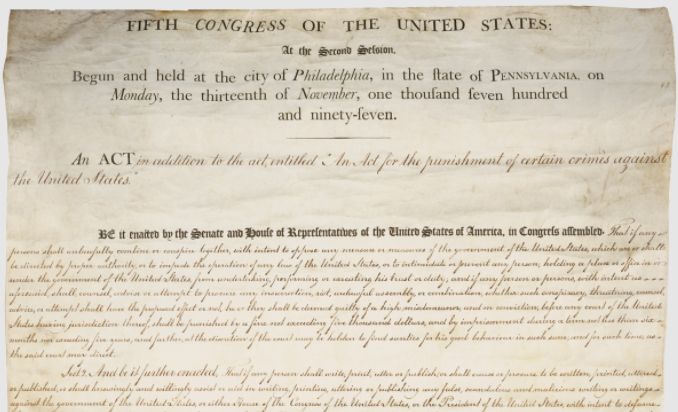 FIFTH CONGRESS OF THE UNITED STATES:
At the Second Session,
Begun and held at the city of Philadelphia, in the ſtate of PENNSYLVANIA, on
Monday, the thirteenth of November, one thouſand ſeven hundred
and ninety-ſeven.
An ACT in addition to the act, entitled "An Act for the punishment of certain crimes against
the United States."
BE it enacted by the Senate and Houſe of Repreſentatives of the United States of America, in Congreſs aſſembled. That if any
persons shall unlawfully combine or conspire together, with intent to oppose any measure or measures of the government of the United States, which are or shall
be directed by proper authority, or to impede the operation of any law of the United States, or to intimidate or prevent any person, holding a place or office in or
under the government of the United States, from undertaking, performing or executing his trust or duty; and if any person or persons, with intent as
aforesaid, shall counsel, advise or attempt to procure any insurrection, riot, unlawful assembly, or combination, whether such conspiracy, threatening, counsel,
advice, or attempt shall have the proposed effect or not, he or they shall be deemed guilty of a high misdemeanor, and on conviction, before any court of the United
States having jurisdiction thereof, shall be punished by a fine not exceeding five thousand dollars, and by imprisonment during a term not less than six
months nor exceeding five years; and further, at the discretion of the court may be holden to find sureties for his good behaviour in such sum, and for such time, as
the said court may direct.
Sect. 2. And be it further enacted, That if any person shall write, print, utter or publish, or shall cause or procure to be written, printed, uttered
or published, or shall knowingly and willingly assist or aid in writing, printing, uttering or publishing any false, scandalous and malicious writing or writings
against the government of the United States, or either House of the Congress of the United States, or the President of the United States, with intent to defame